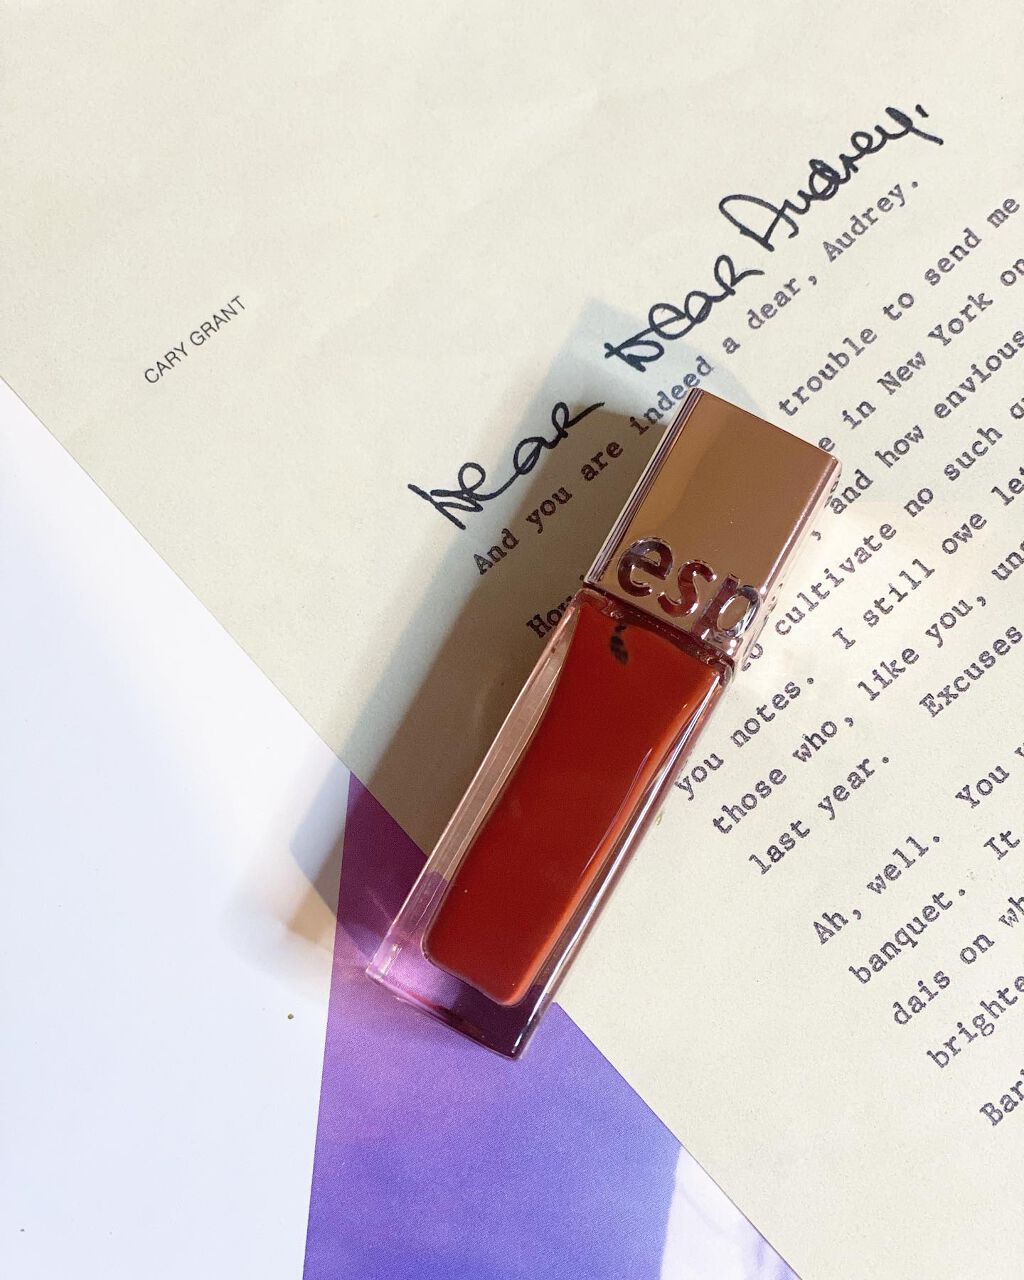 CARY GRANT
Dear Dear Audrey,
And you are indeed a dear, Audrey.
trouble to send me
in New York on
and how envious
to cultivate no such
you notes. I still owe
those who, like you,
last year. Excuses
Ah, well. You
banquet. It
dais on
esp